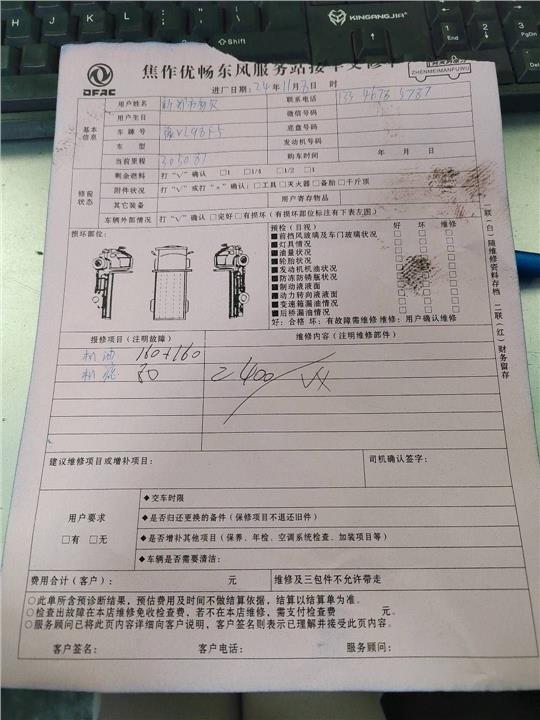 KINGANGJIA
Shift
PgDn
DFAC
焦作优畅东风服务站接车交修单
ZHENMEIMANFUWU
进厂日期: 24年11月8日 时
基本信息
用户姓名
联系电话
用户生日
微信号码
车牌号
底盘号码
车 型
发动机号码
当前里程 305081
购车时间 年 月 日
修前状态
剩余燃料 打“V”确认 □1 □1/4 □1/2 □1
附件状况 打“V”或打“×”确认: □工具□灭火器□备胎□千斤顶
其它装备
用户寄存物品
车辆外部情况 打“V”确认□完好□有损坏(有损坏部位标注有下表左图)
损坏部位:
预检(目视) 好 坏 维修
■前挡风玻璃及车门玻璃状况 □ □ □
■灯具情况 □ □ □
■油量状况 □ □ □
■轮胎状况 □ □ □
■发动机机油状况 □ □ □
■防冻防锈瓶状况 □ □ □
■制动液液面 □ □ □
■动力转向液液面 □ □ □
■变速箱漏油情况 □ □ □
■后桥漏油情况 □ □ □
好: 合格 坏: 有故障需维修 维修: 用户确认维修
报修项目(注明故障)
维修内容(注明维修部件)
机油 160+160
机滤 80
2400
建议维修项目或增补项目:
司机确认签字:
用户要求
□有 □无
◆交车时限
◆是否归还更换的备件(保修项目不退还旧件)
◆是否增补其他项目(保养、年检、空调系统检查、加装项目等)
◆车辆是否需要清洁:
费用合计(客户): 元
维修及三包件不允许带走
○此单所含预诊断结果,预估费用及时间不做结算依据,结算以结算单为准。
○检查出故障在本店维修免收检查费,若不在本店维修,需支付检查费 元。
○服务顾问已将此页内容详细向客户说明,客户签名则表示已理解并接受此页内容。
客户签名: 客户电话: 服务顾问:
一联(白)随维修资料存档 二联(红)财务留存